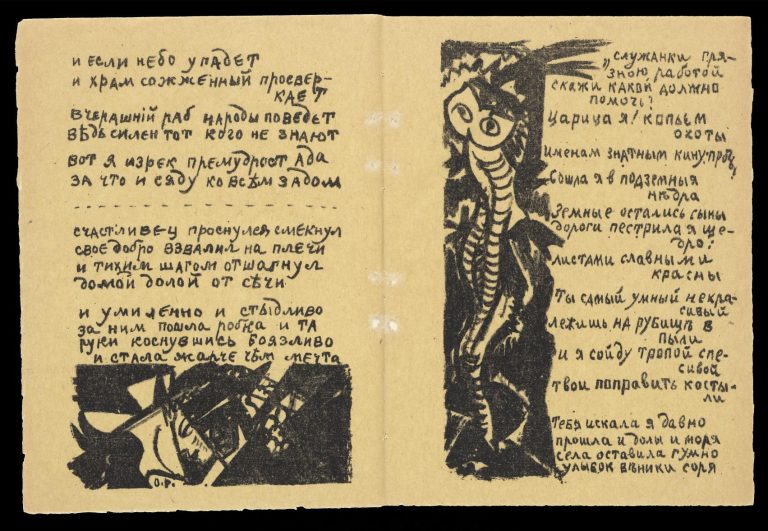 и если небо упадет
и храм сожженный просвер-
кает
вчерашній раб народы поведет
вѣдь силен тот кого не знают
вот я изрек премудрост ада
за что и сяду ко всѣм задом
счастливец проснулся смекнул
свое добро взвалил на плечи
и тихим шагом отшагнул
домой долой от сѣчи
и умиленно и стыдливо
за ним пошла робка и та
руки коснувшись боязливо
и стала жарче чѣм мечта
О.Р.
„служанки гря-
зною работой
скажи какой должно
помочь?
Царица я! копьем
охоты
именам знатным кину:прочь!
Сошла я в подземныя
нѣдра
Земные остались сыны
дороги пестрила я ще-
дро:
листами славными
красны
Ты самый умный некра-
сивый
лежишь на рубищѣ в
пыли
и я сойду тропой спе-
сивой
твои поправить косты-
ли
Тебя искала я давно
прошла и долы и моря
села оставила гумно
улыбок вѣники соря